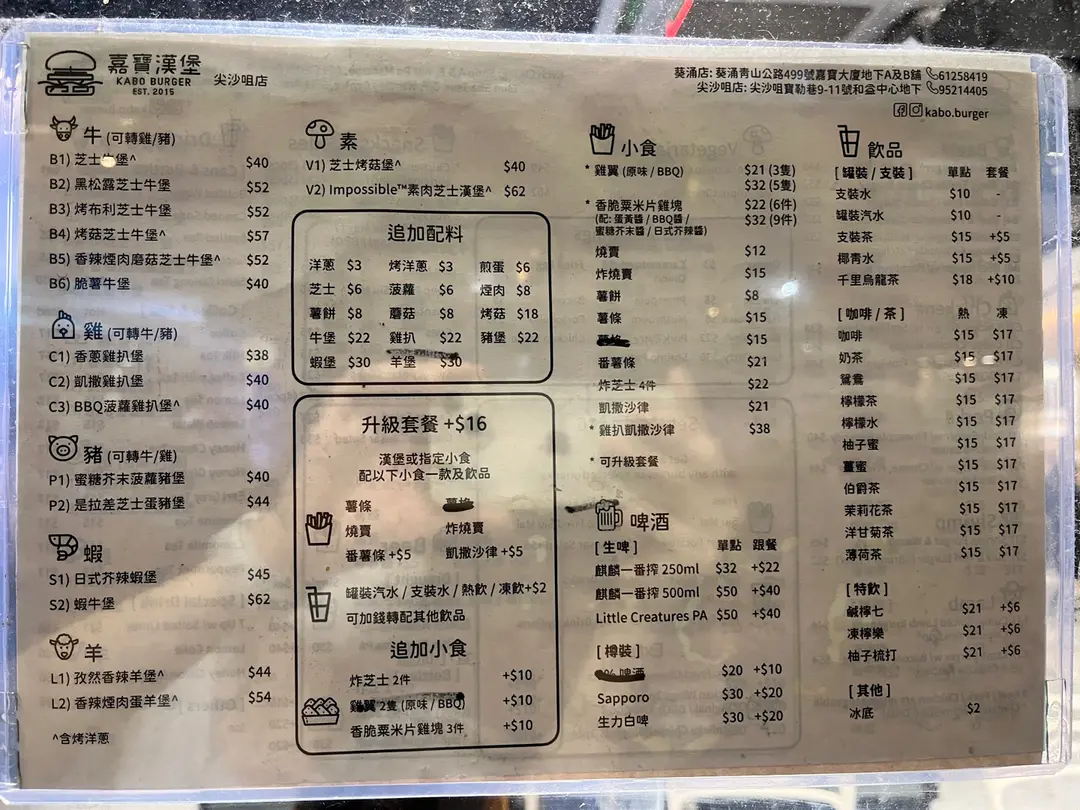 嘉寶漢堡
KABO BURGER
EST. 2015
尖沙咀店
葵涌店: 葵涌青山公路499號嘉寶大廈地下A及B舖 61258419
尖沙咀店: 尖沙咀寶勒巷9-11號和益中心地下 95214405
kabo.burger
牛 (可轉雞/豬)
B1) 芝士牛堡^ $40
B2) 黑松露芝士牛堡 $52
B3) 烤布利芝士牛堡 $52
B4) 烤菇芝士牛堡^ $57
B5) 香辣煙肉磨菇芝士牛堡^ $52
B6) 脆薯牛堡 $40
雞 (可轉牛/豬)
C1) 香蔥雞扒堡 $38
C2) 凱撒雞扒堡 $40
C3) BBQ菠蘿雞扒堡^ $40
豬 (可轉牛/雞)
P1) 蜜糖芥末菠蘿豬堡 $40
P2) 是拉差芝士蛋豬堡 $44
蝦
S1) 日式芥辣蝦堡 $45
S2) 蝦牛堡 $62
羊
L1) 孜然香辣羊堡^ $44
L2) 香辣煙肉蛋羊堡^ $54
^含烤洋蔥
素
V1) 芝士烤菇堡^ $40
V2) Impossible™素肉芝士漢堡^ $62
追加配料
洋蔥 $3 烤洋蔥 $3 煎蛋 $6
芝士 $6 菠蘿 $6 煙肉 $8
薯餅 $8 蘑菇 $8 烤菇 $18
牛堡 $22 雞扒 $22 豬堡 $22
蝦堡 $30 羊堡 $30
升級套餐 +$16
漢堡或指定小食
配以下小食一款及飲品
薯條
燒賣 炸燒賣
番薯條 +$5 凱撒沙律 +$5
罐裝汽水 / 支裝水 / 熱飲 / 凍飲+$2
可加錢轉配其他飲品
追加小食
炸芝士 2件 +$10
雞翼 2隻 (原味 / BBQ) +$10
香脆粟米片雞塊 3件 +$10
小食
* 雞翼 (原味 / BBQ) $21 (3隻)
$32 (5隻)
* 香脆粟米片雞塊 $22 (6件)
(配: 蛋黃醬 / BBQ醬 / $32 (9件)
蜜糖芥末醬 / 日式芥辣醬)
燒賣 $12
炸燒賣 $15
薯餅 $8
薯條 $15
$15
番薯條 $21
炸芝士 4件 $22
凱撒沙律 $21
* 雞扒凱撒沙律 $38
* 可升級套餐
啤酒
[ 生啤 ] 單點 跟餐
麒麟一番搾 250ml $32 +$22
麒麟一番搾 500ml $50 +$40
Little Creatures PA $50 +$40
[ 樽裝 ]
啤酒 $20 +$10
Sapporo $30 +$20
生力白啤 $30 +$20
飲品
[ 罐裝 / 支裝 ] 單點 套餐
支裝水 $10 -
罐裝汽水 $10 -
支裝茶 $15 +$5
椰青水 $15 +$5
千里烏龍茶 $18 +$10
[ 咖啡 / 茶 ] 熱 凍
咖啡 $15 $17
奶茶 $15 $17
鴛鴦 $15 $17
檸檬茶 $15 $17
檸檬水 $15 $17
柚子蜜 $15 $17
薑蜜 $15 $17
伯爵茶 $15 $17
茉莉花茶 $15 $17
洋甘菊茶 $15 $17
薄荷茶 $15 $17
[ 特飲 ]
鹹檸七 $21 +$6
凍檸樂 $21 +$6
柚子梳打 $21 +$6
[ 其他 ]
冰底 $2